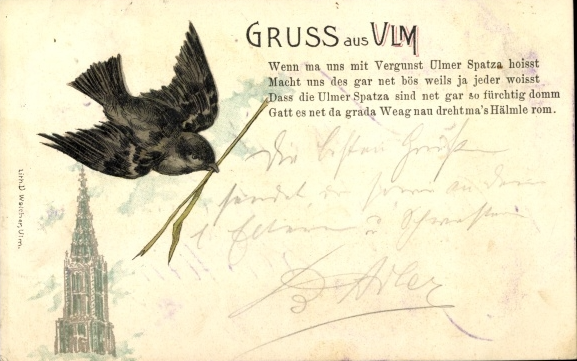 GRUSS aus ULM
Wenn ma uns mit Vergunst Ulmer Spatza hoisst
Macht uns des gar net bös weils ja jeder woisst
Dass die Ulmer Spatza sind net gar so fürchtig domm
Gatt es net da grada Weag nau dreht ma's Hälmle rom.
Die besten Grüße
sendet
Eltern u Schwester
Adler
Lith. D. Walcher, Ulm.